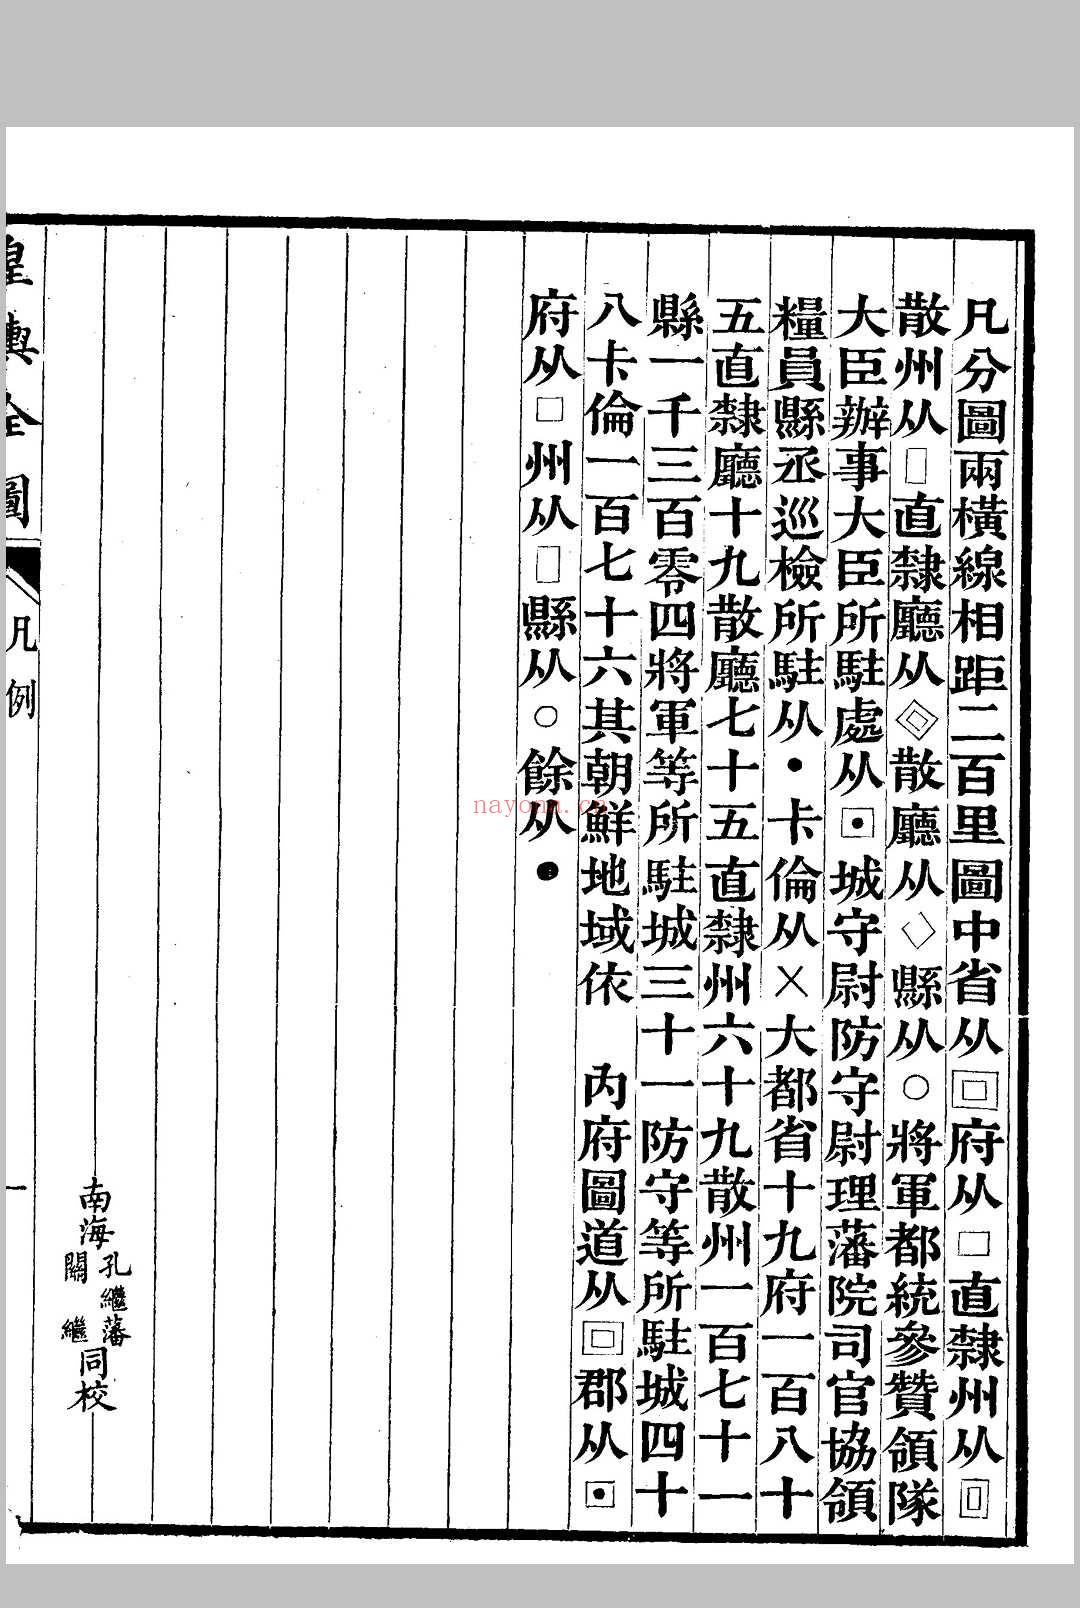 凡分圖兩橫線相距二百里圖中省从回府从□直隸州从
散州从▯直隸廳从◈散廳从◇縣从○將軍都統參贊領隊
大臣辦事大臣所駐處从⊡城守尉防守尉理藩院司官協領
糧員縣丞巡檢所駐从•卡倫从×大都省十九府一百八十
五直隸廳十九散廳七十五直隸州六十九散州一百七十一
縣一千三百零四將軍等所駐城三十一防守等所駐城四十
八卡倫一百七十六其朝鮮地域依 內府圖道从回郡从⊡
府从□州从▯縣从○餘从●
南海孔繼藩
關 繼同校
皇輿全圖 凡例 一
nayona.cn